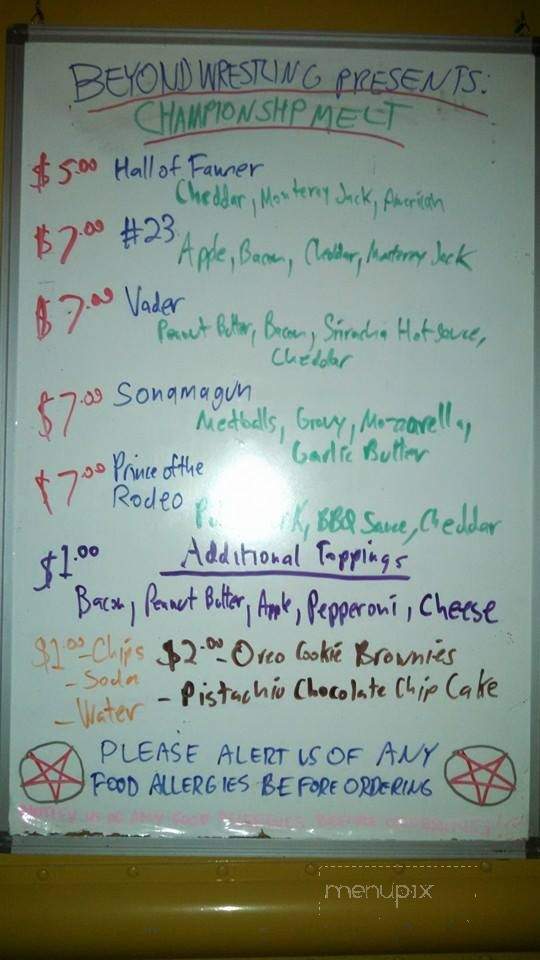 BEYOND WRESTLING PRESENTS:
CHAMPIONSHP MELT
$5.00 Hall of Famer
Cheddar, Monterey Jack, American
$7.00 #23
Apple, Bacon, Cheddar, Monterey Jack
$7.00 Vader
Peanut Butter, Bacon, Sriracha Hot Sauce,
Cheddar
$7.00 Sonamagun
Meatballs, Gravy, Mozzarella,
Garlic Butter
$7.00 Prince of the
Rodeo
BBQ Sauce, Cheddar
$1.00 Additional Toppings
Bacon, Peanut Butter, Apple, Pepperoni, Cheese
$1.00 - Chips
- Soda
- Water
$2.00 - Oreo Cookie Brownies
- Pistachio Chocolate Chip Cake
PLEASE ALERT US OF ANY
FOOD ALLERGIES BEFORE ORDERING
menupix